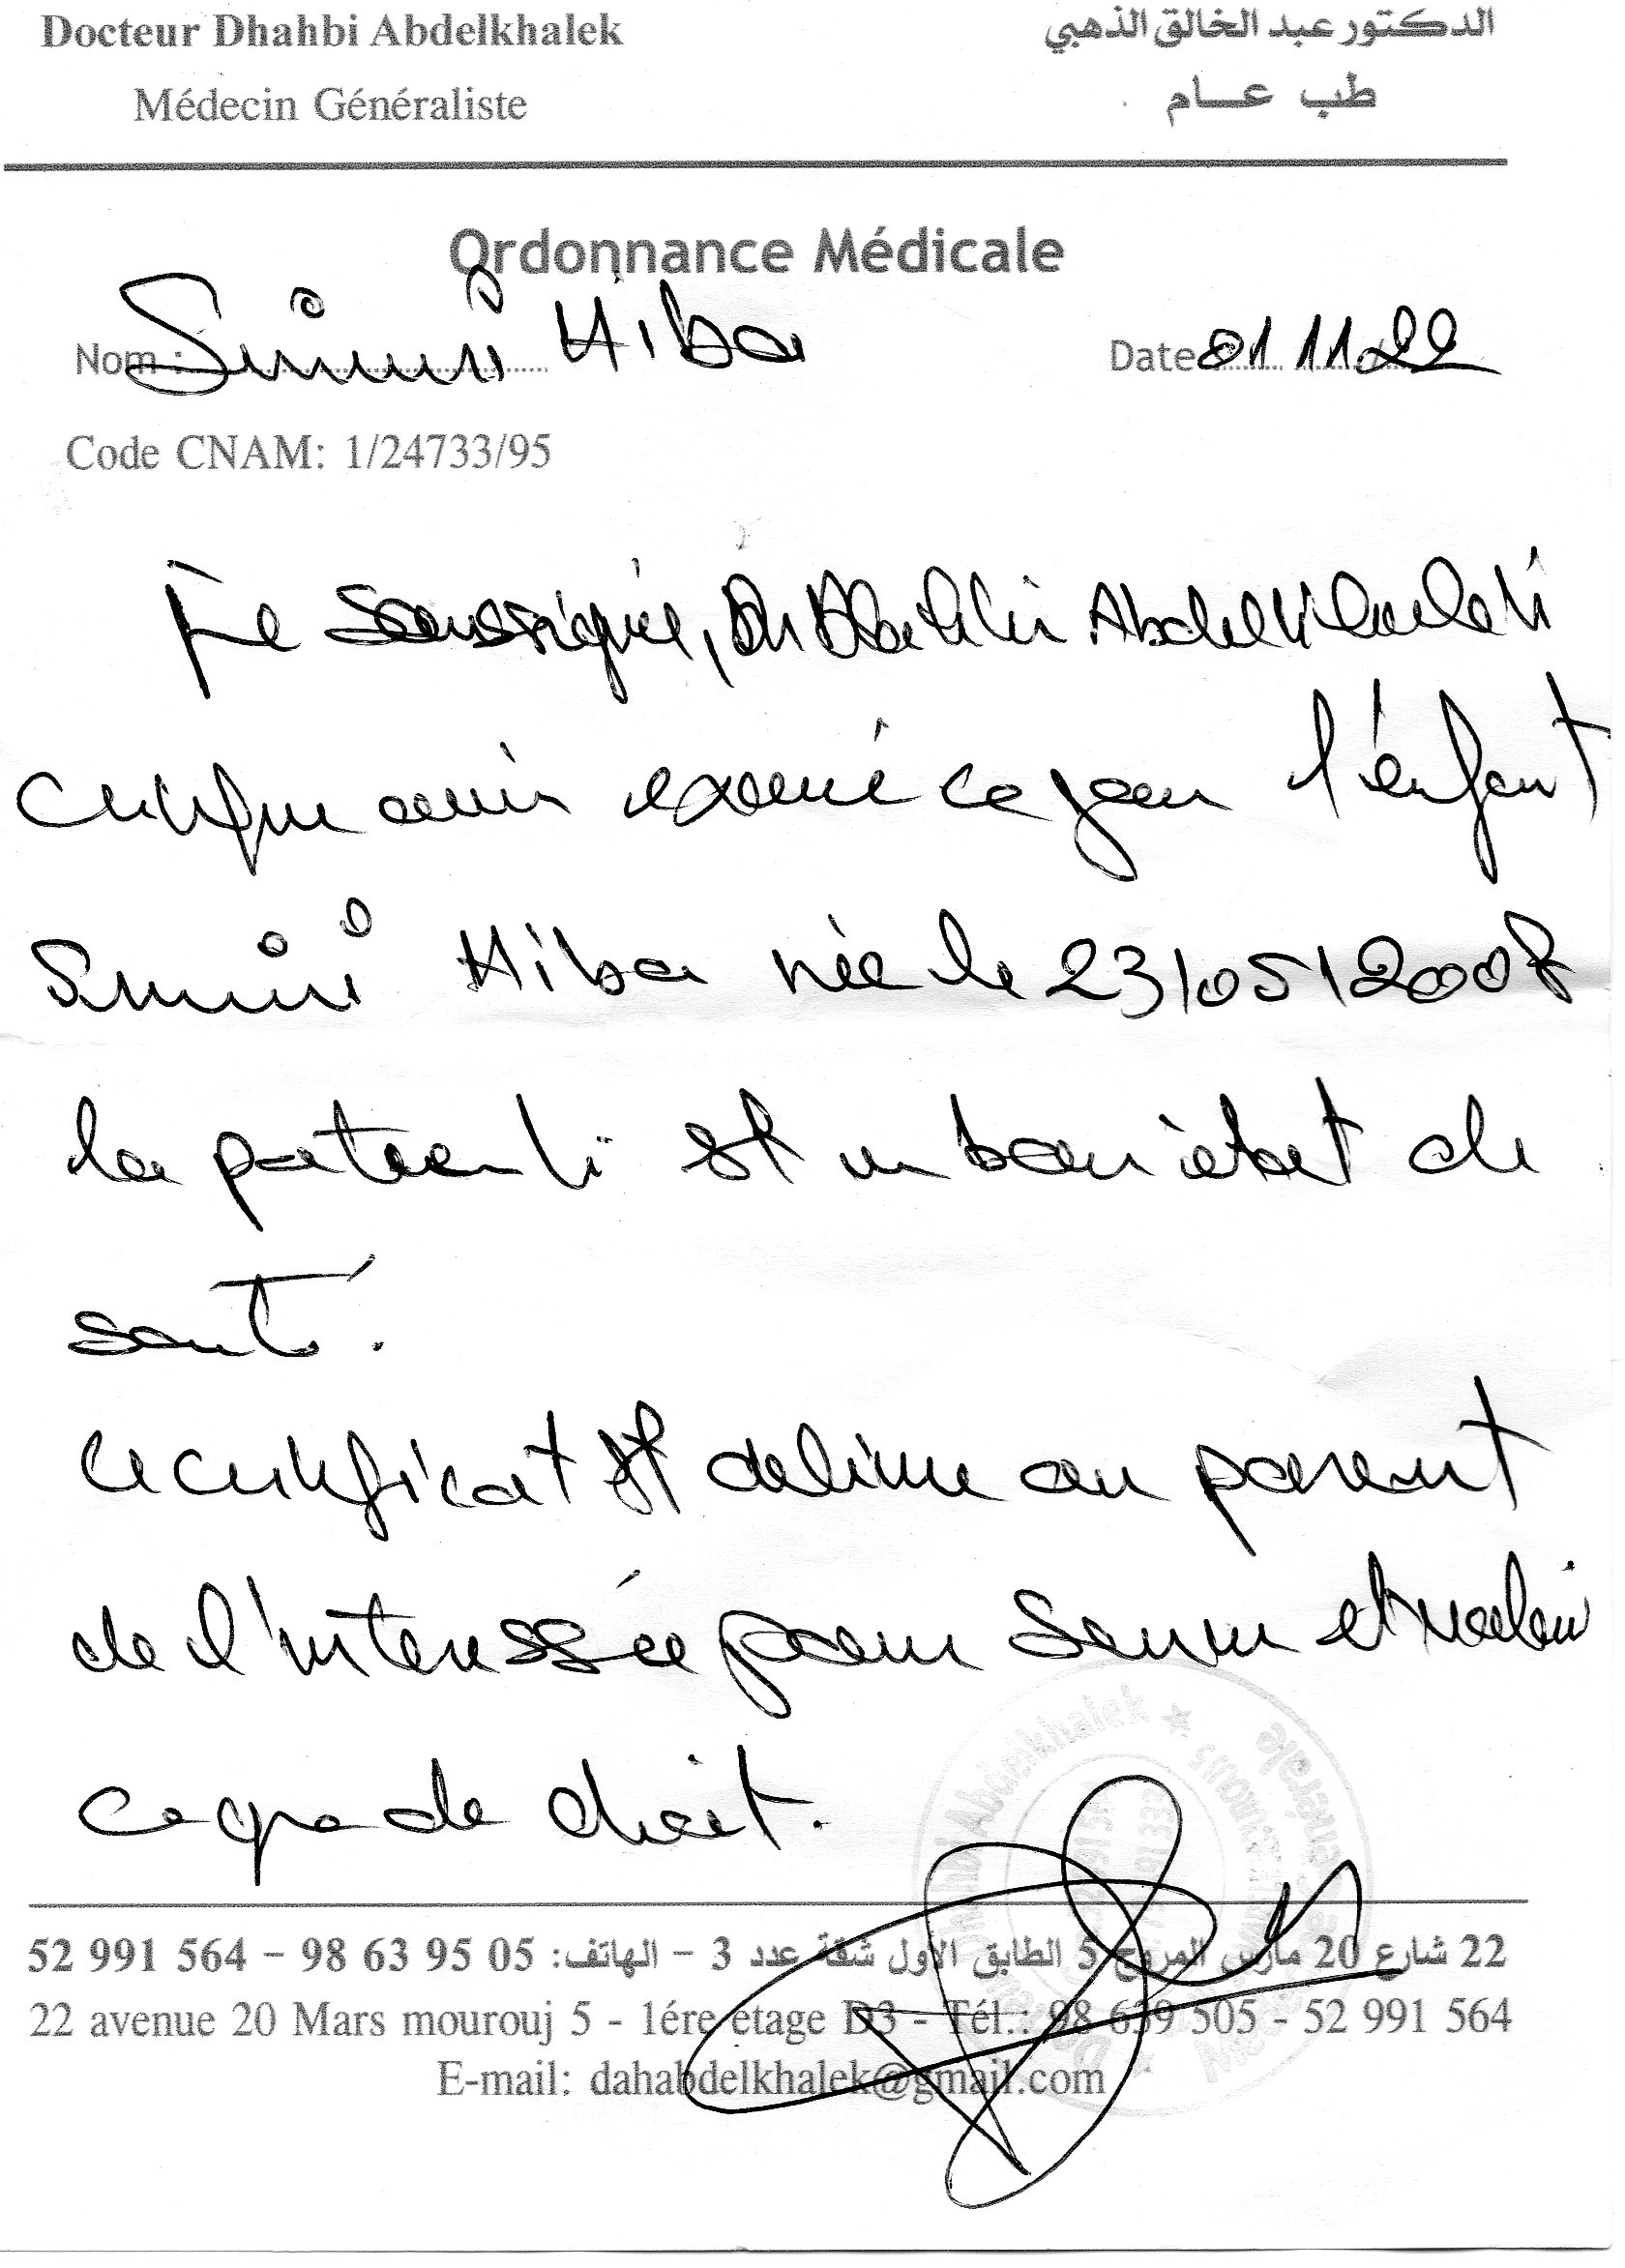 Docteur Dhahbi Abdelkhalek
الدكتور عبد الخالق الذهبي
Médecin Généraliste
طب عــام
Ordonnance Médicale
Nom : Hiba
Date 01 11.22
Code CNAM: 1/24733/95
Je soussigné, Dr Dhahbi Abdelkhalek
certifie avoir examiné ce jour l'enfant
Hiba née le 23/05/2008
la patiente est en bon état de
santé.
Ce certificat est délivré au parent
de l'intéressée pour servir et valoir
ce que de droit.
22 شارع 20 مارس المروج 5 الطابق الأول شقة عدد 3 – الهاتف: 05 95 63 98 – 564 991 52
22 avenue 20 Mars mourouj 5 - 1ére etage D3 - Tél.: 98 639 505 - 52 991 564
E-mail: dahabdelkhalek@gmail.com
Abdelkhalek